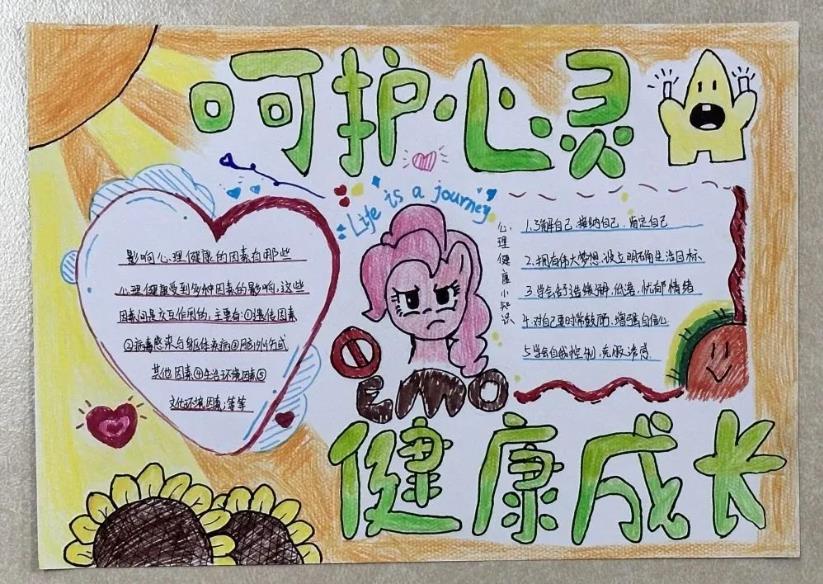 呵护心灵
Life is a journey
影响心理健康的因素有哪些
心理健康受到多种因素的影响,这些
因素间是交互作用的,主要有:①遗传因素
②病毒感染与躯体疾病③
其他因素④生活环境因素⑤
文化环境因素;等等
EMO
心理健康小知识
1.了解自己,接纳自己,肯定自己
2.拥有伟大梦想,设立明确生活目标
3.学会给予造烦躁,低落,忧郁情绪
4.对自己要时常鼓励,增强自信心
5.学会自我控制,克服
健康成长